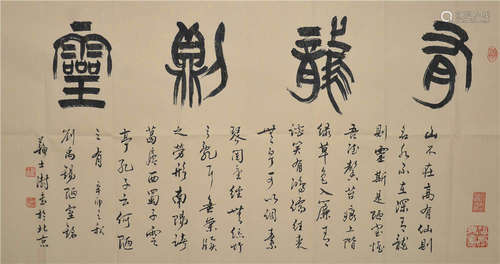 有龍則靈
山不在高有仙則
名水不在深有龍
則靈斯是陋室惟
吾德馨苔痕上階
綠草色入簾青
談笑有鴻儒往來
無白丁可以調素
琴閱金經無絲竹
之亂耳無案牘
之勞形南陽諸
葛廬西蜀子雲
亭孔子云何陋
之有 辛卯之秋
劉禹錫陋室銘
蘇士澍書於北京